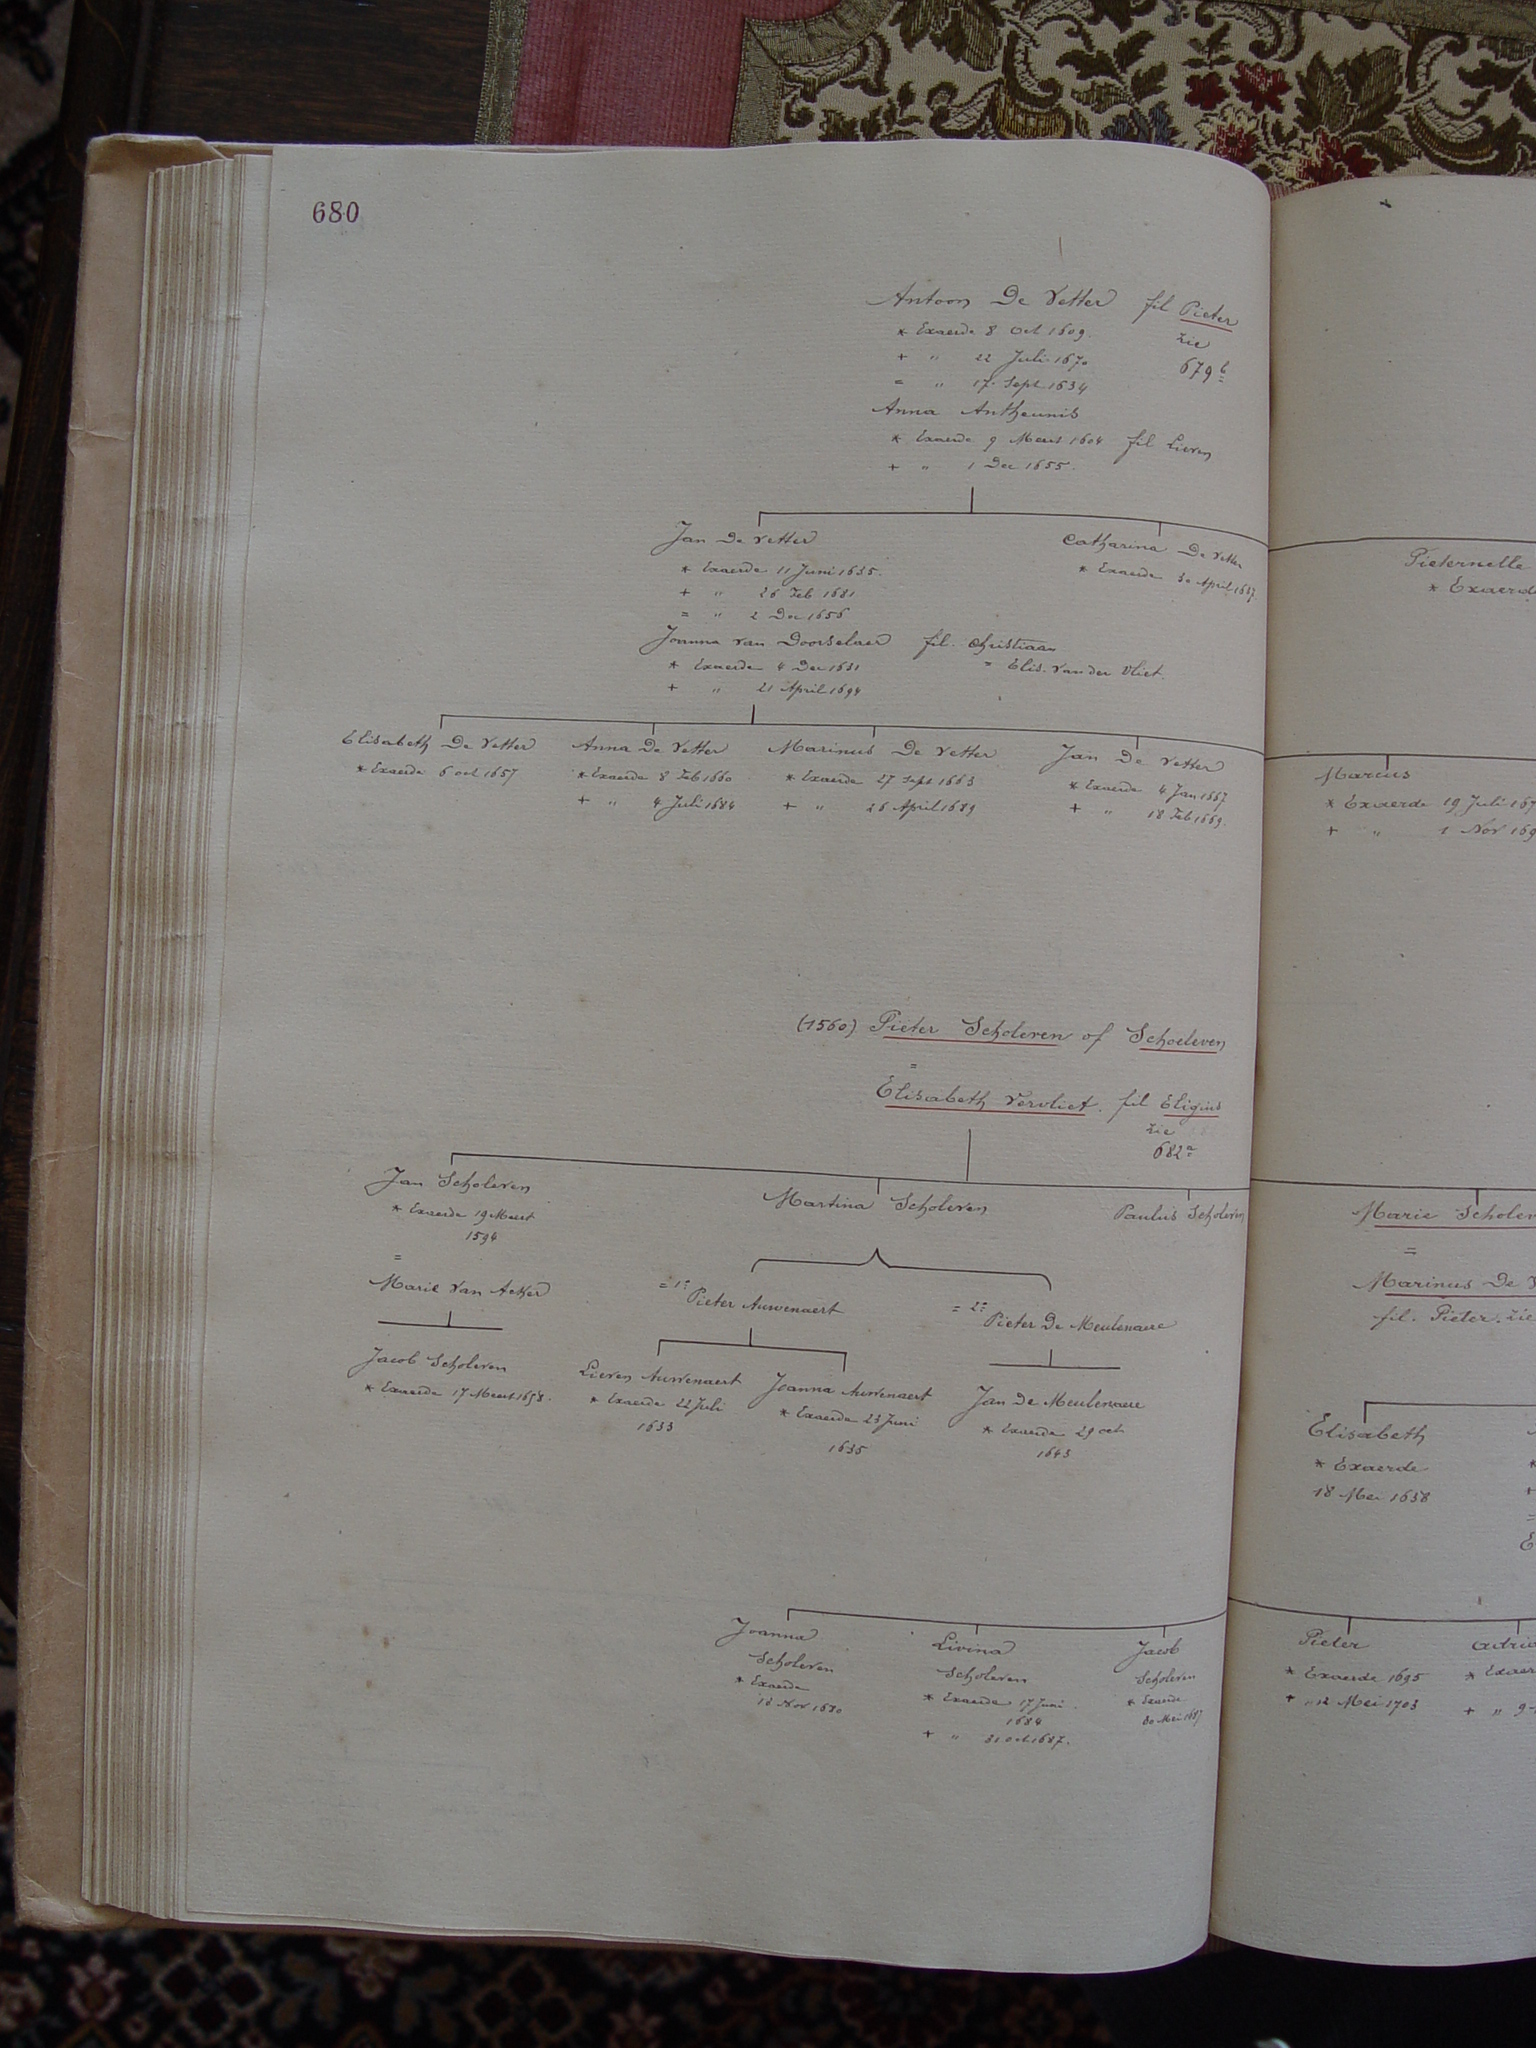 680
Antoon De Vetter fil Pieter
* Exaerde 8 Oct 1609. zie
+ " 22 Juli 1670 679 b
= " 17 Sept 1634
Anna Antheunis
* Exaerde 9 Meert 1604 fil Lieven
+ " 1 Dec 1655.
Jan De Vetter
* Exaerde 11 Juni 1635.
+ " 26 Feb 1681
= " 2 Dec 1656
Joanna van Doorselaer fil. Christiaan
* Exaerde 4 Dec 1631 = Elis. Van der Vliet.
+ " 21 April 1694
Catharina De Vetter
* Exaerde 30 April 1637.
Pieternelle
* Exaerde
Elisabeth De Vetter
* Exaerde 6 oct 1657
Anna De Vetter
* Exaerde 8 Feb 1660
+ " 4 Juli 1684
Marinus De Vetter
* Exaerde 27 Sept 1663
+ " 26 April 1689
Jan De Vetter
* Exaerde 4 Jan 1667
+ " 18 Feb 1669.
Marcus
* Exaerde 19 Juli 167
+ " 1 Nov 169
(1560) Pieter Scholeven of Schoeleven
=
Elisabeth Vervliet. fil Eligius
zie
682 a
Jan Scholeven
* Exaerde 19 Meert
1594
=
Marie Van Acker
Martina Scholeven
Paulus Scholeven
Marie Scholeven
=
Marinus De V
fil. Pieter. zie
= 1° Pieter Auwenaert
= 2° Pieter De Meulenaere
Jacob Scholeven
* Exaerde 17 Meert 1658.
Lieven Auwenaert
* Exaerde 22 Juli
1633
Joanna Auwenaert
* Exaerde 23 Juni
1635
Jan De Meulenaere
* Exaerde 29 oct
1643
Elisabeth
* Exaerde
18 Mei 1638
Joanna
Scholeven
* Exaerde
18 Nov 1680
Livina
Scholeven
* Exaerde 17 Juni
1684
+ " 31 oct 1687.
Jacob
Scholeven
* Exaerde
30 Mei 1687
Pieter
* Exaerde 1695
+ " 12 Mei 1703
Adria
* Exaer
+ " 9